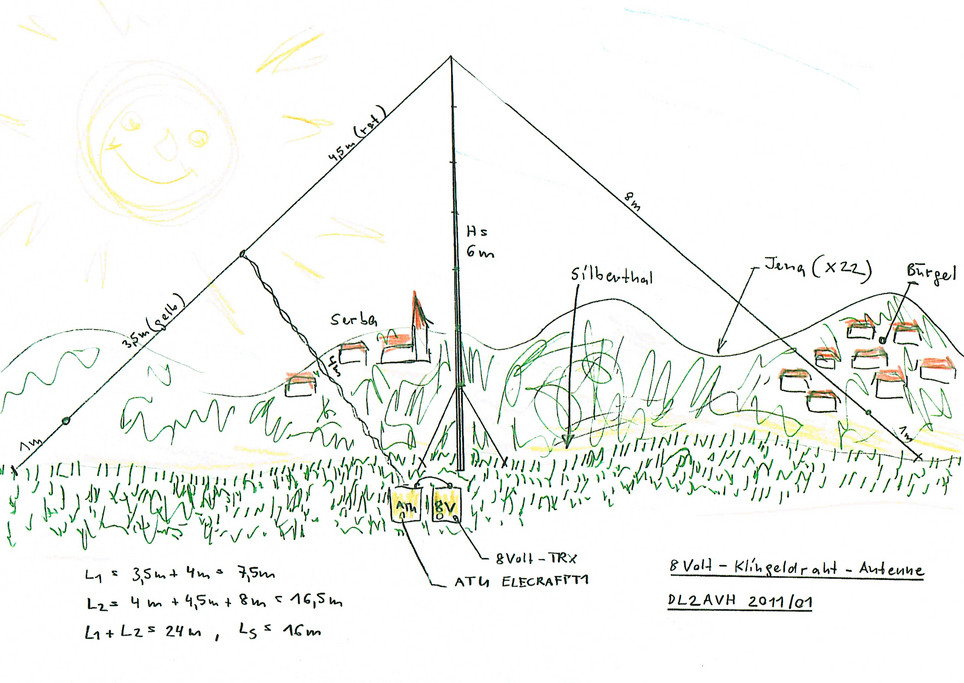 4,5m (rot)
8m
Hs
6m
Silberthal
Jena (X22)
Bürgel
3,5m (gelb)
Serba
1m
1m
8V
8Volt-TRX
ATU ELECRAFTT1
L1 = 3,5m + 4m = 7,5m
L2 = 4m + 4,5m + 8m = 16,5m
L1 + L2 = 24m , Ls = 16m
8Volt-Klingeldraht-Antenne
DL2AVH 2011/01